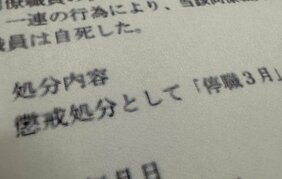 一連の行為により、当該
職員は自死した。
処分内容
懲戒処分として「停職3月」
月日